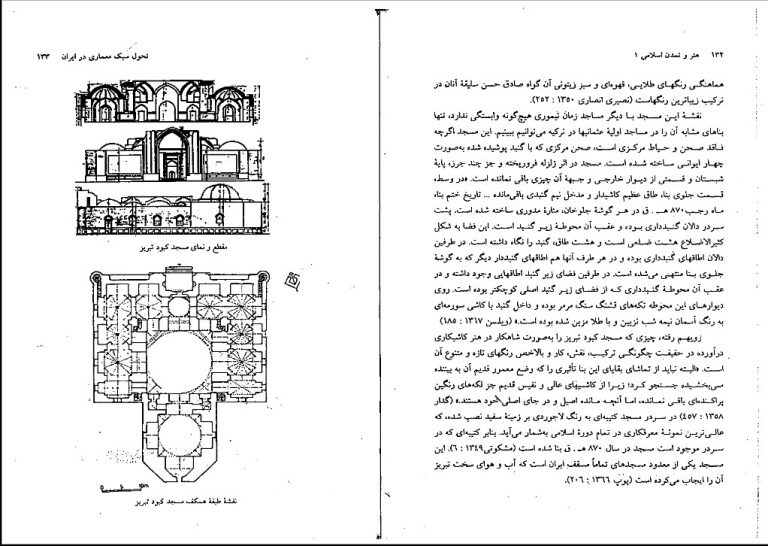 ۱۳۲ هنر و تمدن اسلامی ۱
هماهنگی رنگهای طلایی، قهوه‌ای و سبز زیتونی آن گواه صادق حسن سلیقهٔ آنان در
ترکیب زیباترین رنگهاست (نصیری انصاری ۱۳۵۰ : ۲۵۲).
نقشهٔ این مسجد با دیگر مساجد زمان تیموری هیچ‌گونه وابستگی ندارد، تنها
بناهای مشابه آن را در مساجد اولیهٔ عثمانیها در ترکیه می‌توانیم ببینیم. این مسجد اگرچه
فاقد صحن و حیاط مرکزی است، صحن مرکزی که با گنبد پوشیده شده به‌صورت
چهار ایوانی ساخته شده است. مسجد در اثر زلزله فروریخته و جز چند جرز، پایهٔ
شبستان و قسمتی از دیوار خارجی و جبههٔ آن چیزی باقی نمانده است. «در وسط،
قسمت جلوی بنا، طاق عظیم کاشیدار و مدخل نیم گنبدی باقی‌مانده ... تاریخ ختم بنا،
ماه رجب ۸۷۰ هـ . ق در هر گوشهٔ جلوخان، منارهٔ مدوری ساخته شده است. پشت
سردر دالان گنبدداری بوده، و عقب آن محوطهٔ زیر گنبد است. این فضا به شکل
کثیرالاضلاع هشت ضلعی است و هشت طاق، گنبد را نگاه داشته است. در طرفین
دالان اطاقهای گنبدداری بوده و در هر طرف آنها هم اطاقهای گنبددار دیگر که به گوشهٔ
جلوی بنا منتهی می‌شده است. در طرفین فضای زیر گنبد اطاقهایی وجود داشته و در
عقب آن محوطهٔ گنبدداری که از فضای زیر گنبد اصلی کوچکتر بوده است. روی
دیوارهای این محوطه تکه‌های قشنگ سنگ مرمر بوده و داخل گنبد با کاشی سورمه‌ای
به رنگ آسمان نیمه شب تزیین و با طلا مزین شده بوده است.» (ویلسن ۱۳۱۷ : ۱۸۵)
رویهم رفته، چیزی که مسجد کبود تبریز را به‌صورت شاهکار در هنر کاشیکاری
درآورده در حقیقت چگونگی ترکیب، نقش، کار و بالاخص رنگهای تازه و متنوع آن
است. «البته نباید از تماشای بقایای این بنا تأثیری را که وضع معمور قدیم آن به بیننده
می‌بخشیده جستجو کرد؛ زیرا از کاشیهای عالی و نفیس قدیم جز لکه‌های رنگین
پراکنده‌ای باقی نمانده، اما آنچه مانده اصیل و در جای اصلی خود هستند.» (گدار
۱۳۵۸ : ۴۵۷) در سردر مسجد کتیبه‌ای به رنگ لاجوردی بر زمینهٔ سفید نصب شده، که
عالی‌ترین نمونهٔ معرقکاری در تمام دورهٔ اسلامی به‌شمار می‌آید. بنابر کتیبه‌ای که در
سردر موجود است مسجد در سال ۸۷۰ هـ . ق بنا شده است (مشکوتی ۱۳۴۹ : ۶). این
مسجد یکی از معدود مسجدهای تماماً مسقف ایران است که آب و هوای سخت تبریز
آن را ایجاب می‌کرده است (پوپ ۱۳۶۶ : ۲۰۶).
تحول سبک معماری در ایران ۱۳۳
مقطع و نمای مسجد کبود تبریز
نقشهٔ طبقهٔ همکف مسجد کبود تبریز